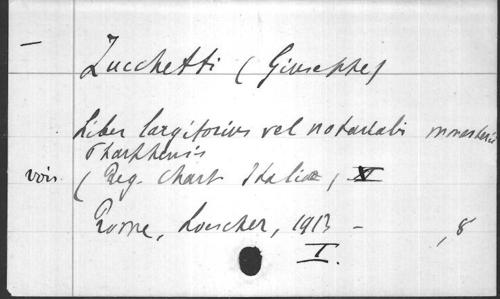 —
Zucchetti (Giuseppe)
Liber largitorius vel notarialis monasterii
Pharphensis
vois (Reg. Chart Italiae, XI
Rome, Loescher, 1913 — , 8
I.